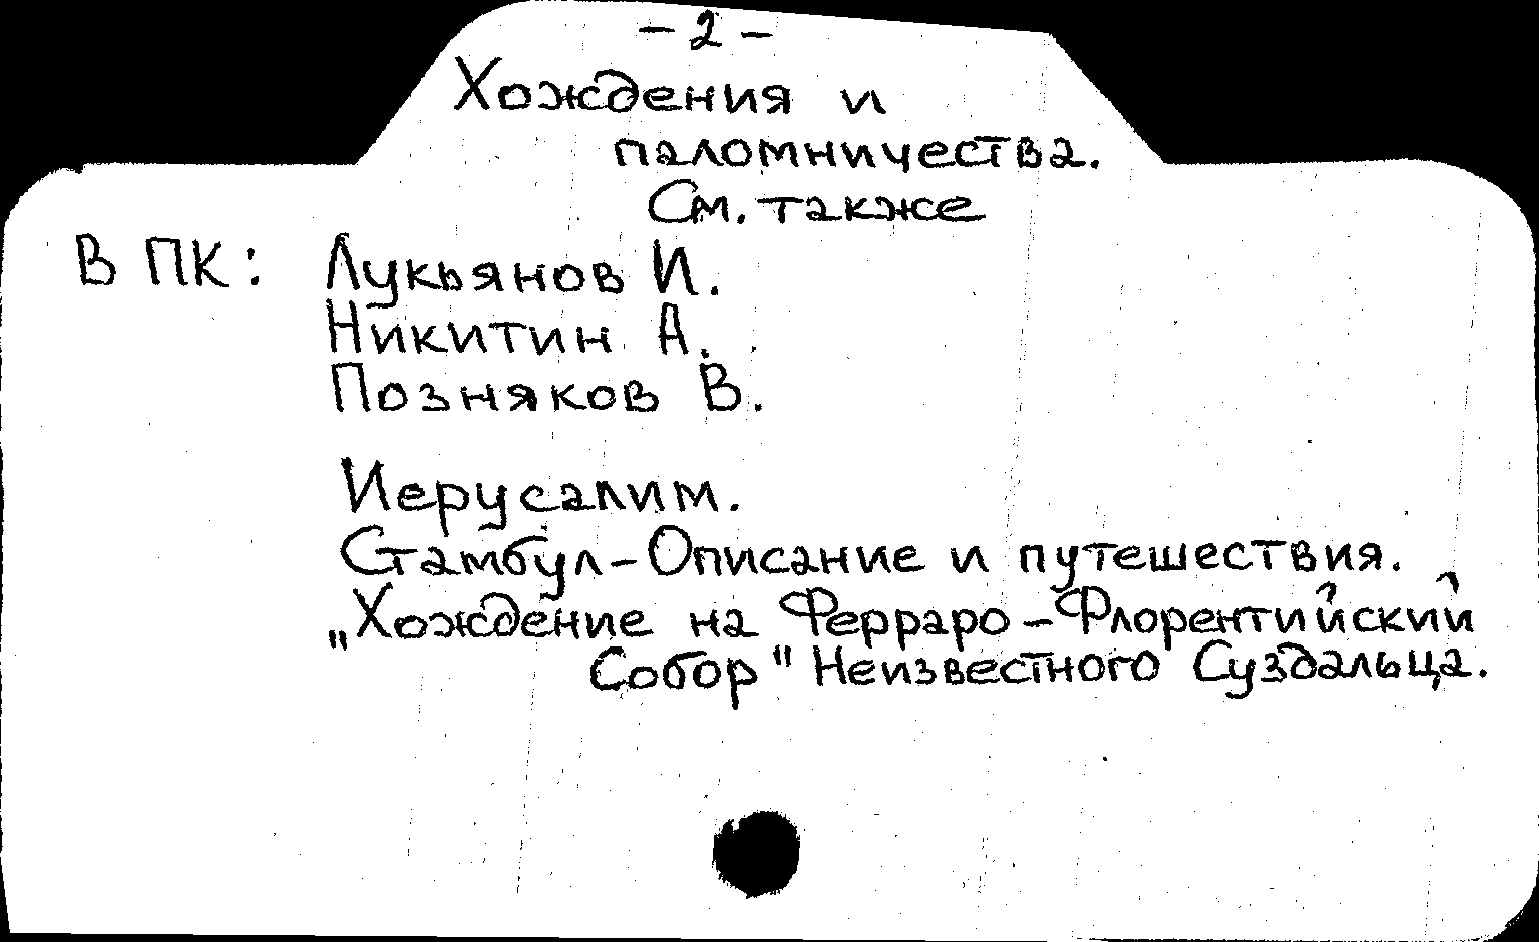 - 2 -
Хождения и
паломничества.
См. также
В ПК: Лукьянов И.
Никитин А.
Позняков В.
Иерусалим.
Стамбул - Описание и путешествия.
„Хождение на Ферраро - Флорентийский
Собор" Неизвестного Суздальца.